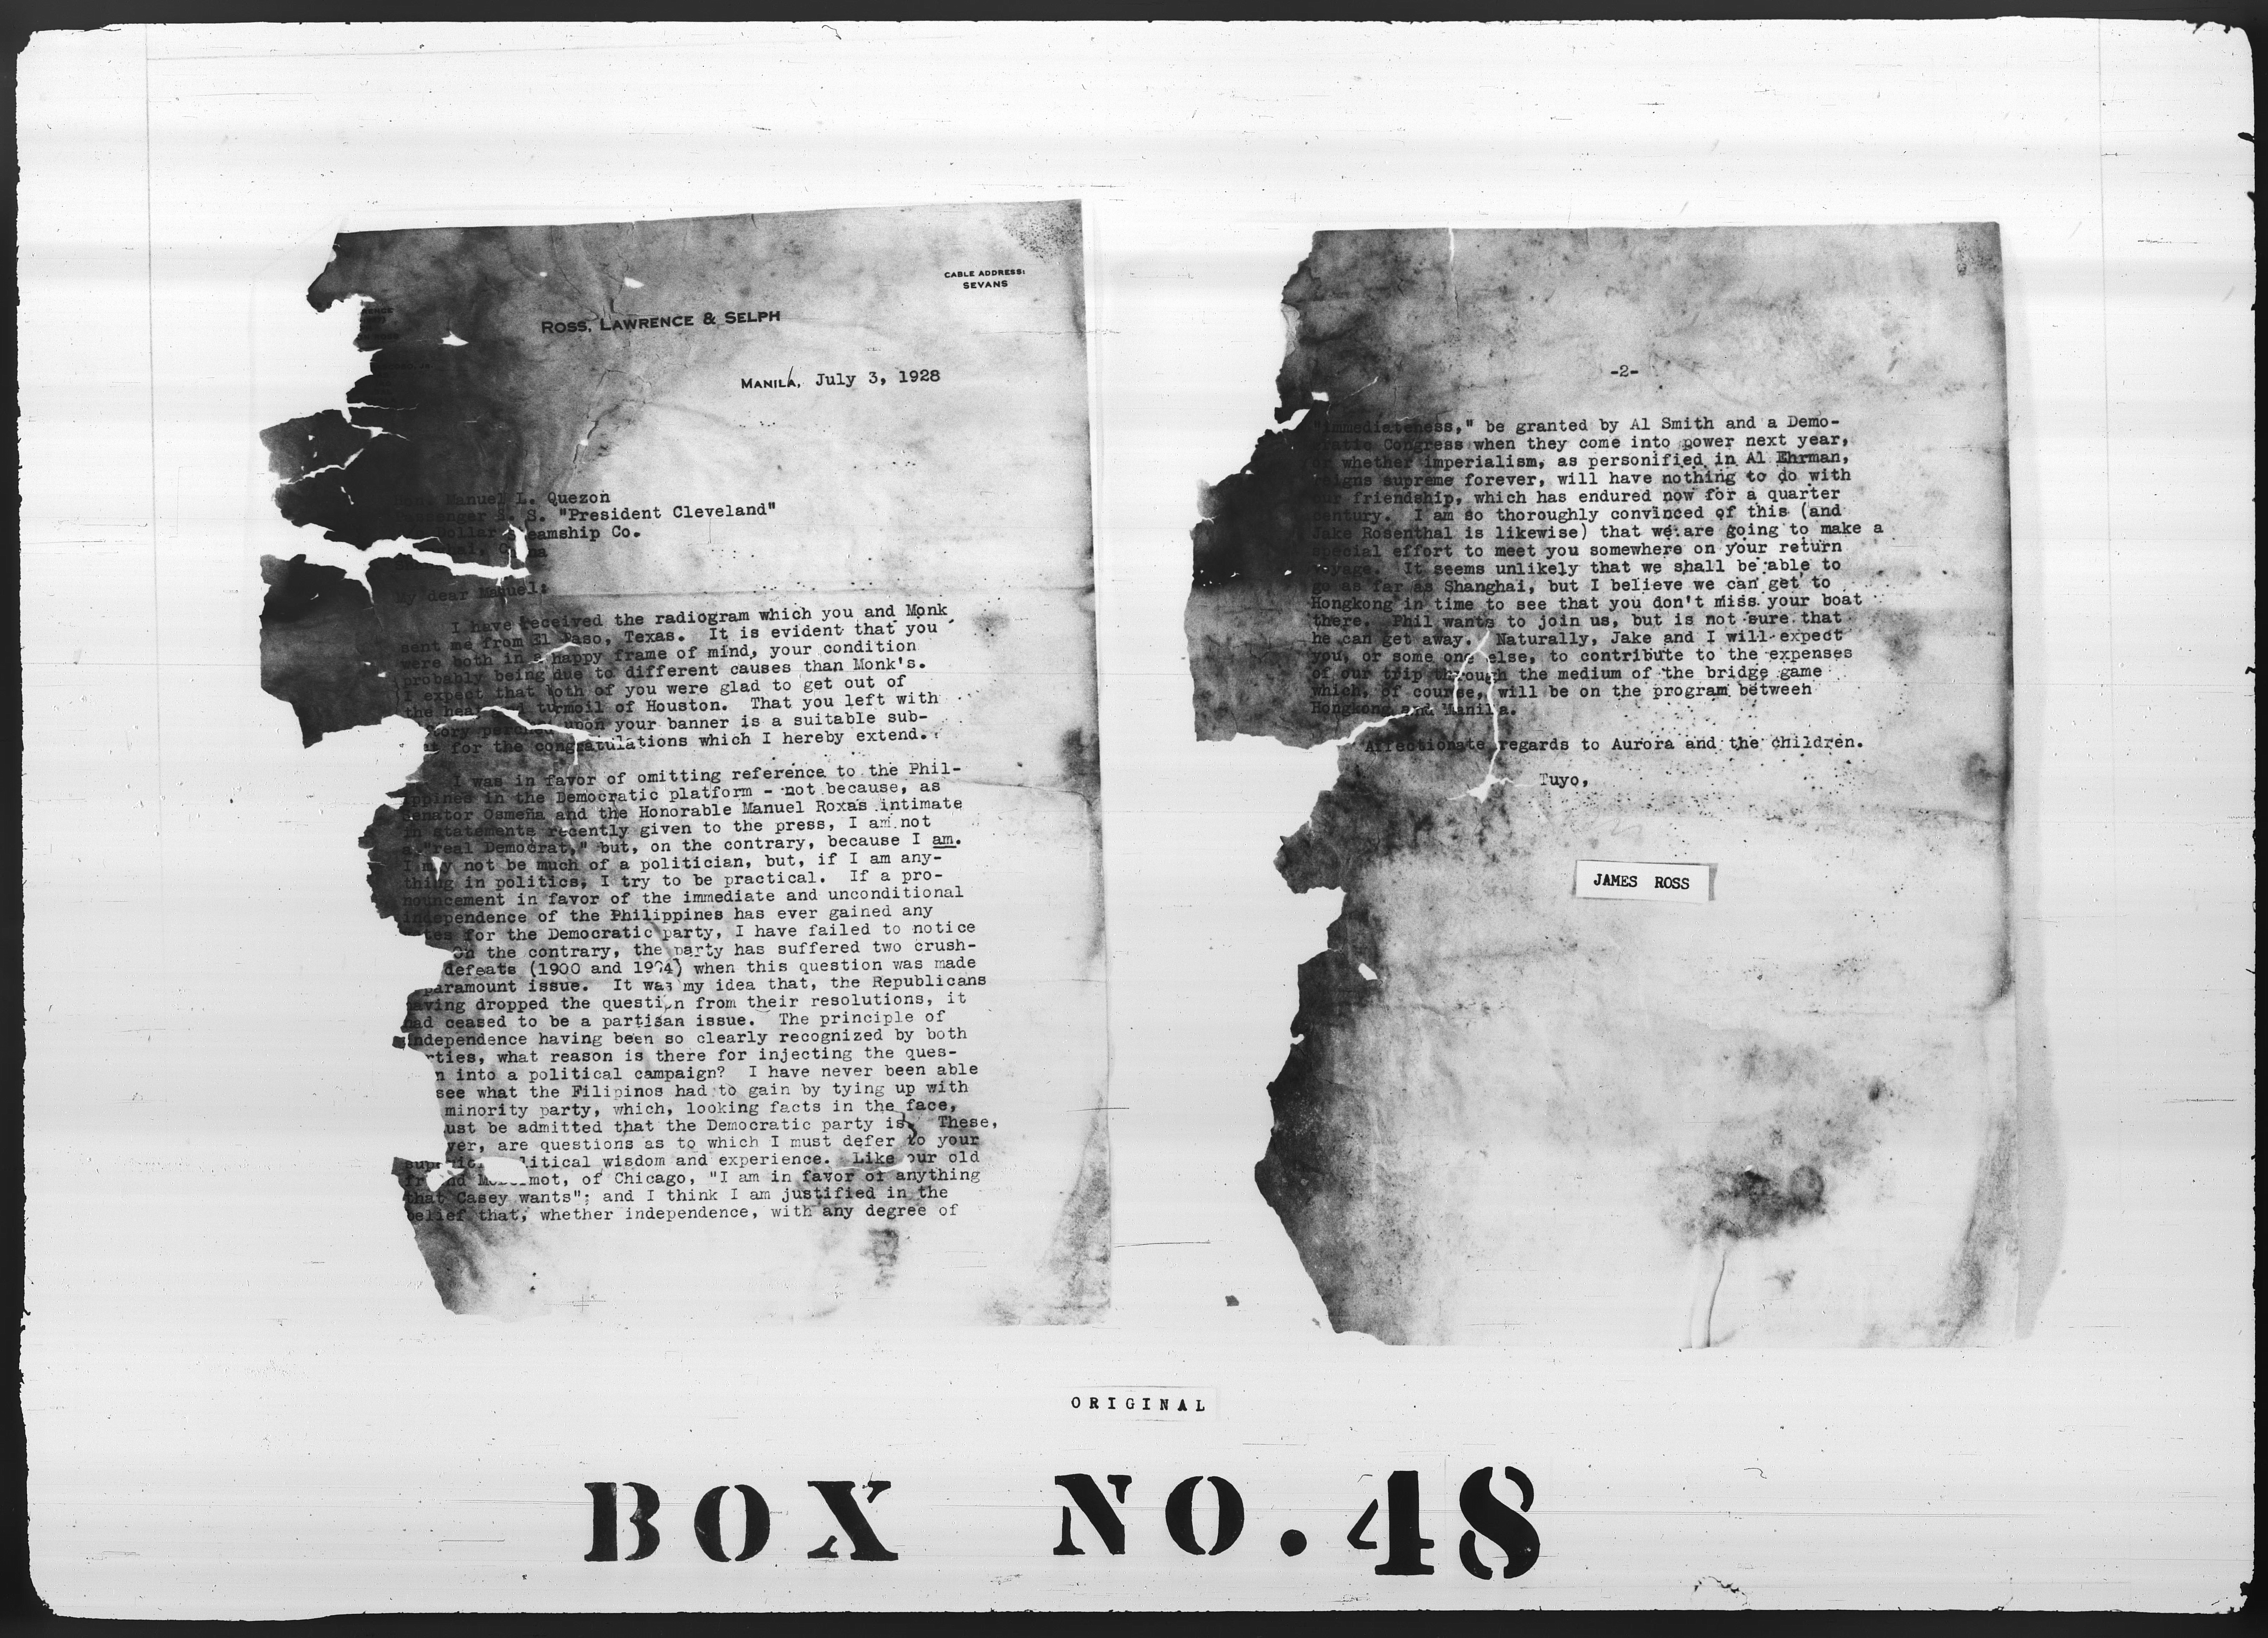 CABLE ADDRESS:
SEVANS
ROSS, LAWRENCE & SELPH
MANILA, July 3, 1928
Manuel L. Quezon
Passenger S. S. "President Cleveland"
Dollar Steamship Co.
China
My dear Manuel:
I have received the radiogram which you and Monk
sent me from El Paso, Texas. It is evident that you
were both in a happy frame of mind, your condition
probably being due to different causes than Monk's.
I expect that both of you were glad to get out of
the heat and turmoil of Houston. That you left with
perched upon your banner is a suitable sub-
for the congratulations which I hereby extend.
I was in favor of omitting reference to the Phil-
ippines in the Democratic platform - not because, as
Senator Osmeña and the Honorable Manuel Roxas intimate
in statements recently given to the press, I am not
a "real Democrat," but, on the contrary, because I am.
I may not be much of a politician, but, if I am any-
thing in politics, I try to be practical. If a pro-
nouncement in favor of the immediate and unconditional
independence of the Philippines has ever gained any
for the Democratic party, I have failed to notice
On the contrary, the party has suffered two crush-
defeats (1900 and 1904) when this question was made
paramount issue. It was my idea that, the Republicans
having dropped the question from their resolutions, it
had ceased to be a partisan issue. The principle of
independence having been so clearly recognized by both
rties, what reason is there for injecting the ques-
n into a political campaign? I have never been able
see what the Filipinos had to gain by tying up with
minority party, which, looking facts in the face,
ust be admitted that the Democratic party is. These,
ver, are questions as to which I must defer to your
litical wisdom and experience. Like our old
friend mot, of Chicago, "I am in favor of anything
that Casey wants"; and I think I am justified in the
belief that, whether independence, with any degree of
-2-
"immediateness," be granted by Al Smith and a Demo-
cratic Congress when they come into power next year,
or whether imperialism, as personified in Al Ehrman,
reigns supreme forever, will have nothing to do with
our friendship, which has endured now for a quarter
century. I am so thoroughly convinced of this (and
Jake Rosenthal is likewise) that we are going to make a
special effort to meet you somewhere on your return
voyage. It seems unlikely that we shall be able to
go as far as Shanghai, but I believe we can get to
Hongkong in time to see that you don't miss your boat
there. Phil wants to join us, but is not sure that
he can get away. Naturally, Jake and I will expect
you, or some one else, to contribute to the expenses
of our trip through the medium of the bridge game
which, of course, will be on the program between
Hongkong and Manila.
Affectionate regards to Aurora and the children.
Tuyo,
JAMES ROSS
ORIGINAL
BOX NO. 48